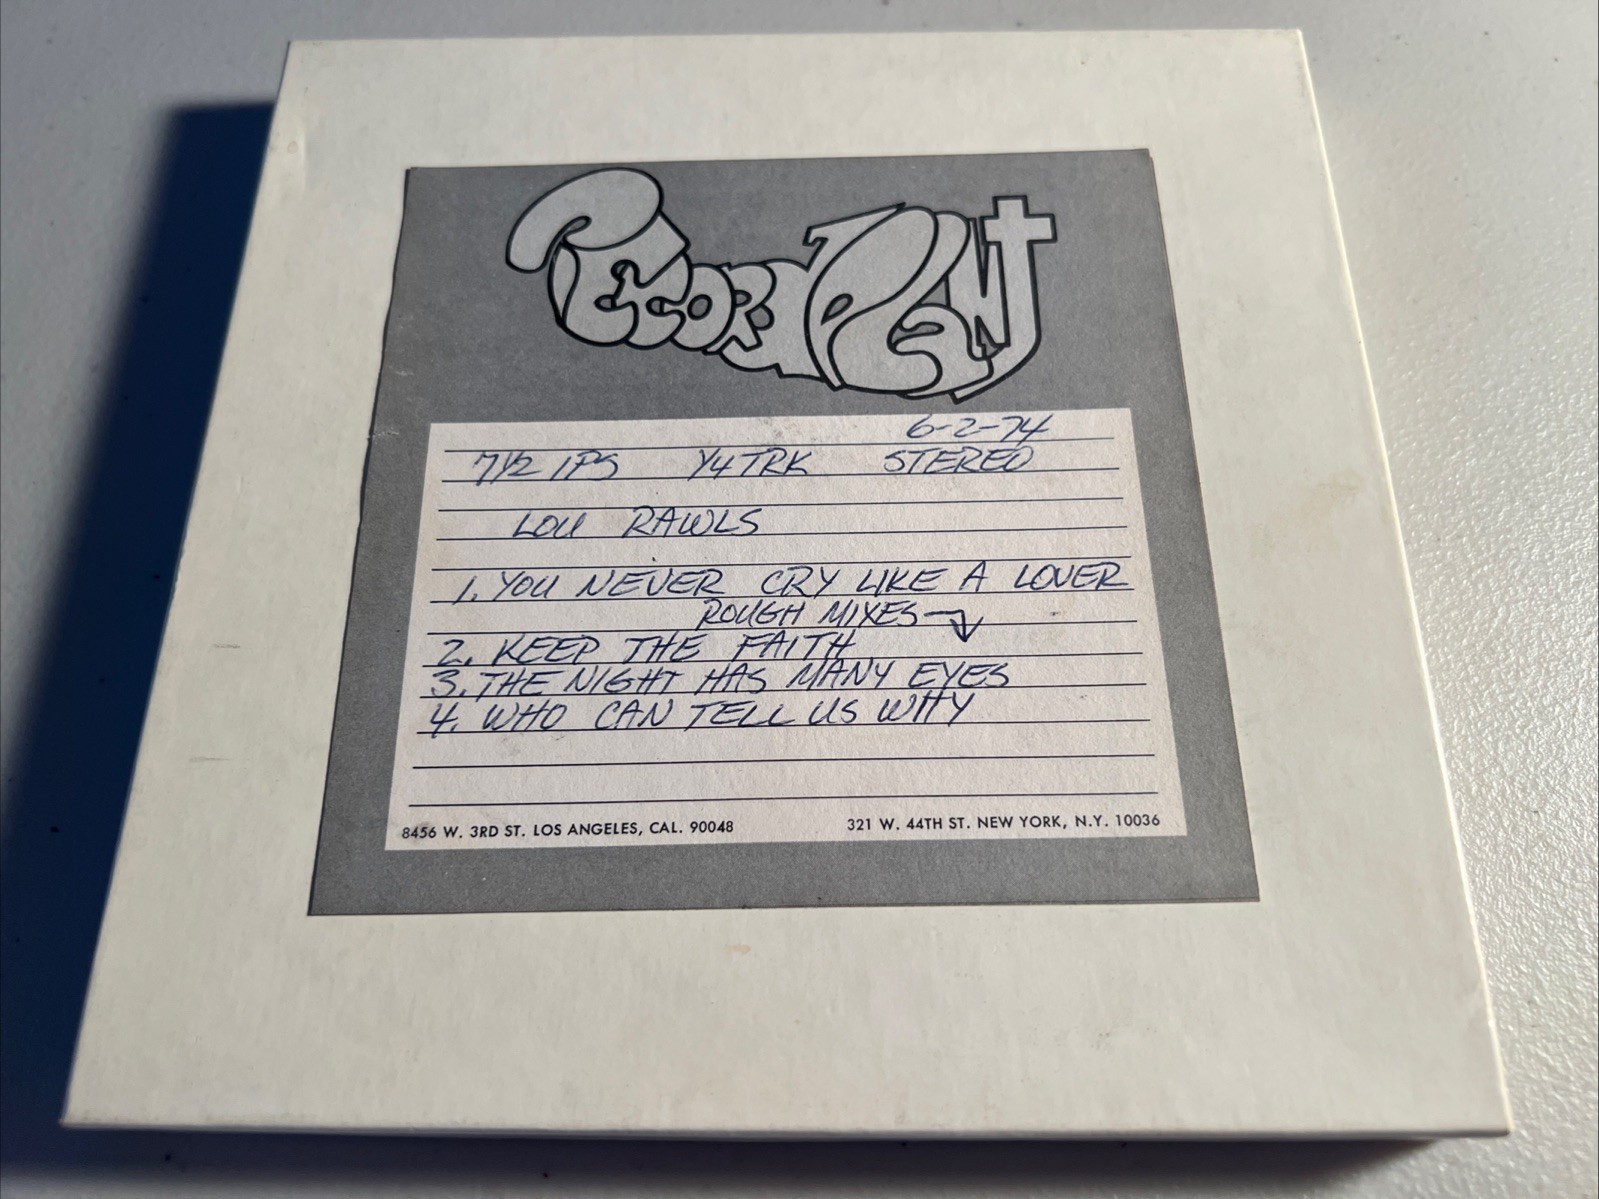 RECORD PLANT
6-2-74
7 1/2 IPS 1/4 TRK STEREO
LOU RAWLS
1. YOU NEVER CRY LIKE A LOVER
ROUGH MIXES
2. KEEP THE FAITH
3. THE NIGHT HAS MANY EYES
4. WHO CAN TELL US WHY
8456 W. 3RD ST. LOS ANGELES, CAL. 90048 321 W. 44TH ST. NEW YORK, N.Y. 10036